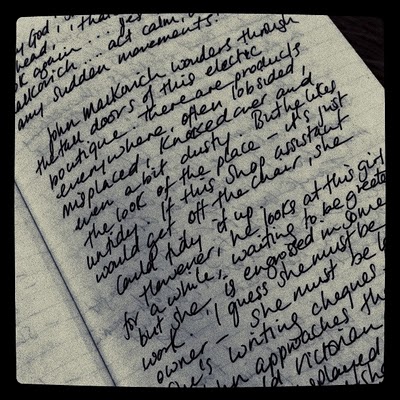 God!, that
head,
ok again... yes
alkovich... act calm,
any sudden movements.
John Malkovich wonders through
the tall doors of this electric
boutique - there are products
everywhere, often lobsided,
misplaced, knocked over and,
even a bit dusty. But he likes
the look of the place - it's just
untidy. If this shop assistant
would get off the chair, she
could tidy it up.
However, he looks at this girl
for a while, waiting to be greeted
but she is engrossed in some
work. I guess she must be
owner - she must be
she's writing cheques.
approaches th
Victorian
splayed